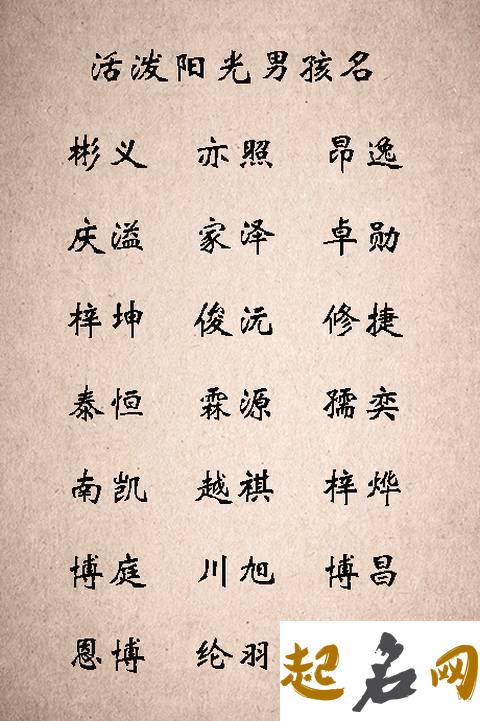 活泼阳光男孩名
彬义 亦照 昂逸
庆溢 家泽 卓勋
梓坤 俊沅 修捷
泰恒 霖源 孺奕
南凯 越祺 梓烨
博庭 川旭 博昌
恩博 纶羽
起名网